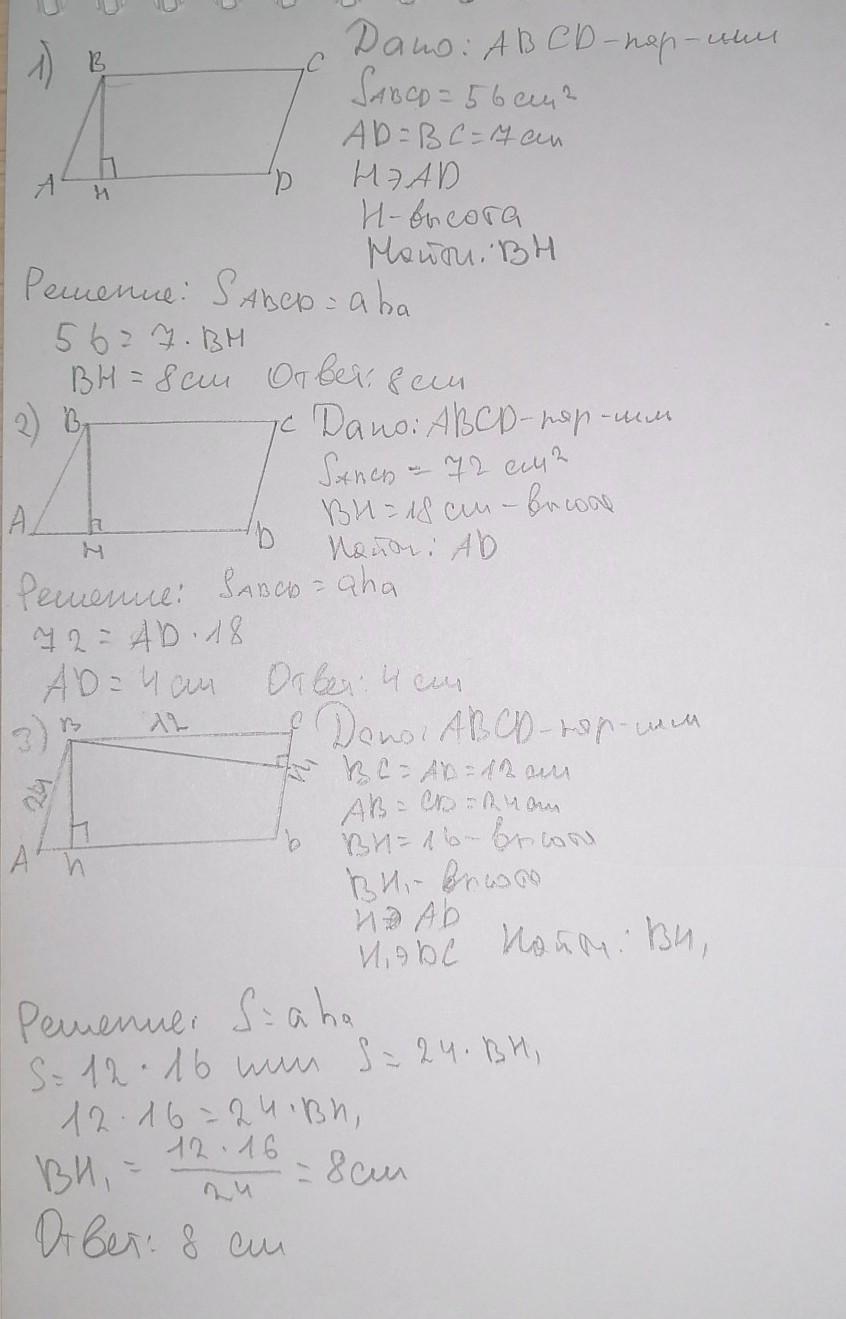 1) B C Дано: ABCD-пар-мм
S ABCD = 56 см²
AD = BC = 7 см
A H D H э AD
H - высота
Найти: BH
Решение: S ABCD = aha
56 = 7 · BH
BH = 8 см Ответ: 8 см
2) B C Дано: ABCD-пар-мм
S ABCD = 72 см²
A BH = 18 см - высота
H D Найти: AD
Решение: S ABCD = aha
72 = AD · 18
AD = 4 см Ответ: 4 см
3) B 12 C Дано: ABCD-пар-мм
H₁ BC = AD = 12 см
24 AB = CD = 24 см
A h D BH = 16 - высота
BH₁ - высота
H э AD
H₁ э DC Найти: BH₁
Решение: S = aha
S = 12 · 16 или S = 24 · BH₁
12 · 16 = 24 · BH₁
BH₁ = 12 · 16 / 24 = 8 см
Ответ: 8 см